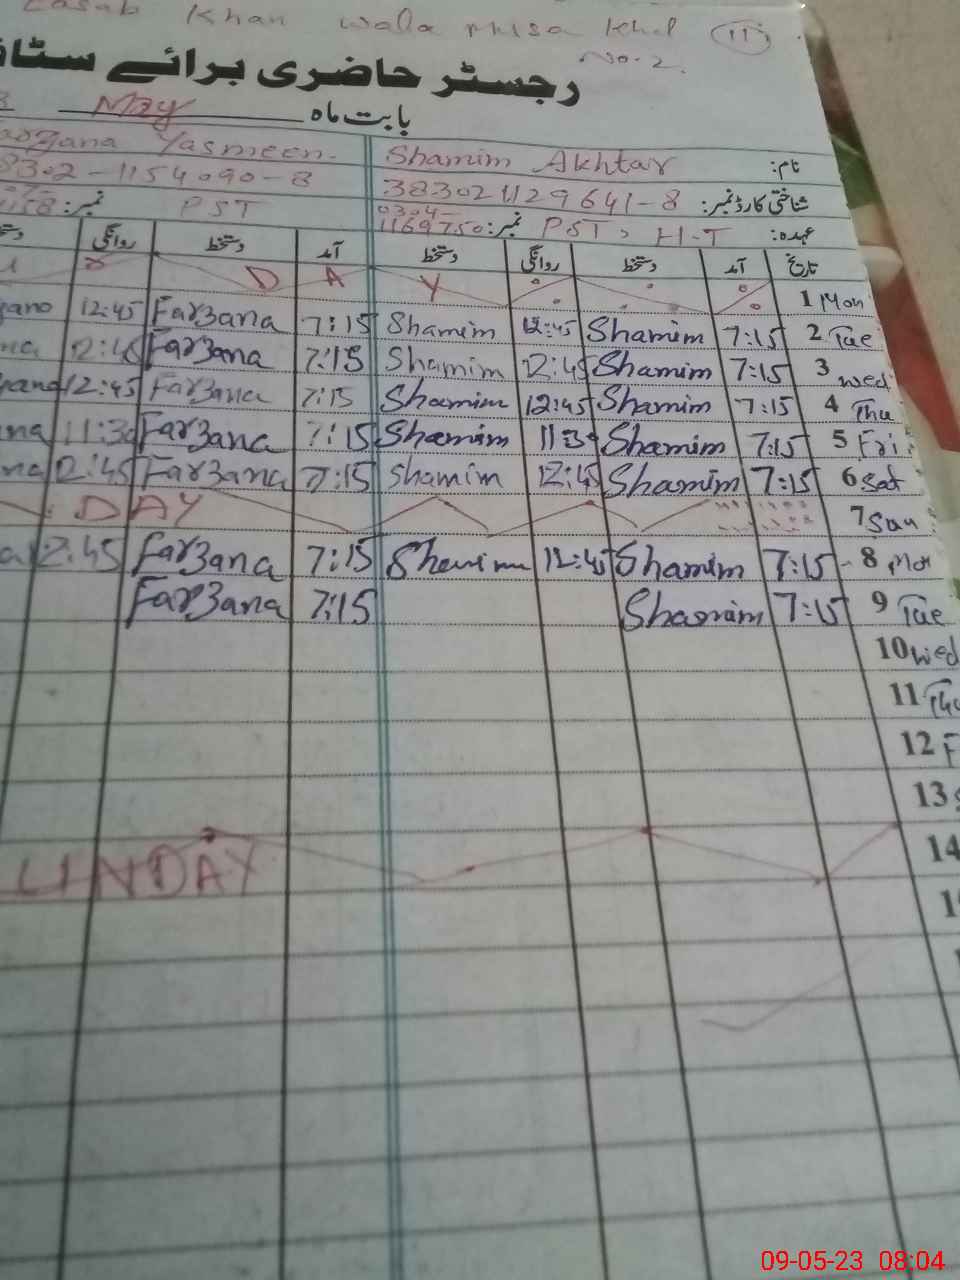 Khan wala Musa Khel 11
No. 2.
رجسٹر حاضری برائے سٹاف
بابت ماہ May
نام: Shamim Akhtar Yasmeen
شناختی کارڈ نمبر: 38302 1129641-8 8302-1154090-8
0304-
عہدہ: PST, H-T نمبر: 1169750 PST نمبر: 1158
تاریخ آمد دستخط روانگی دستخط آمد دستخط روانگی
1 Mon Y A D
2 Tue 7:15 Shamim 12:45 Shamim 7:15 Farzana 12:45
3 Wed 7:15 Shamim 12:45 Shamim 7:15 Farzana 12:45
4 Thu 7:15 Shamim 12:45 Shamim 7:15 Farzana 12:45
5 Fri 7:15 Shamim 11:30 Shamim 7:15 Farzana 11:30
6 Sat 7:15 Shamim 12:45 Shamim 7:15 Farzana 12:45
7 Sun DAY
8 Mon 7:15 Shamim 12:45 Shamim 7:15 Farzana 12:45
9 Tue 7:15 Shamim 7:15 Farzana
10 Wed
11 Thu
12 F
13 S
14 UNDAY
09-05-23 08:04